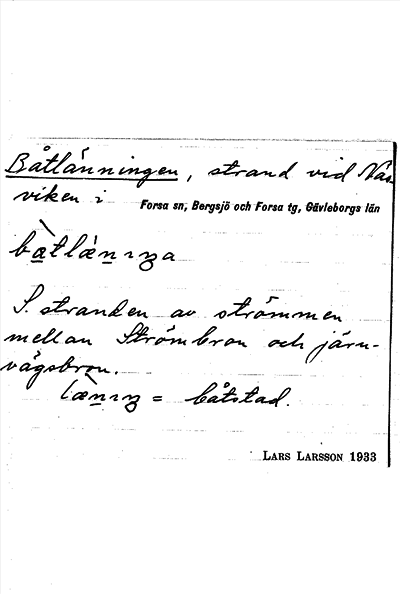 Båtlänningen, strand vid Näs-
viken i Forsa sn, Bergsjö och Forsa tg, Gävleborgs län
bàtlæ̀nıŋa
S. stranden av strömmen
mellan Strömbron och järn-
vägsbron.
læ̀nıŋ = båtstad.
LARS LARSSON 1933